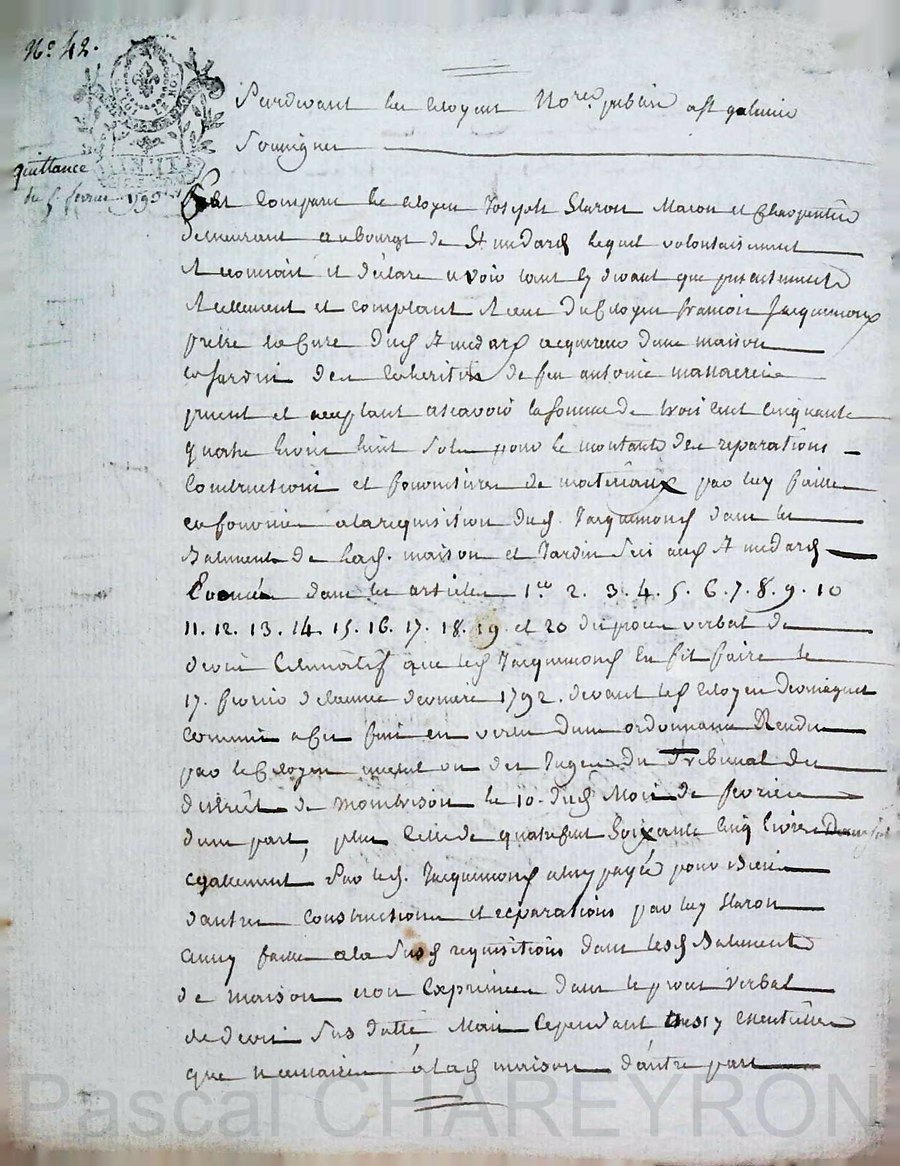 No. 42.
quittance
du 5 fevrier 1793
Pardevant les citoyens Nore. public a St galmier
Soussignes
Est Comparu le citoyen Joseph Staron Macon et Charpentier
demeurant au bourgt de St medard lequel volontairement
A reconnait et déclare avoir tant cy devant que presentement
Reellement et comptant Receu Du Citoyen francois Jacquemont
pretre la Cure dud St medard acquereur dune maison
et Jardin des Coheritiers de feu antoine massacrier
present et acceptant ascavoir la somme de trois cent Cinquante
quatre livres huit Sols pour le montant des reparations
Constructions et fournitures de materiaux par luy faitte
et fournies a la requisition dud. Jacquemont dans les
Batiments de lad. maison et Jardin Sis aud St medard
Enoncées dans les articles 1er 2. 3. 4. 5. 6. 7. 8. 9. 10
11. 12. 13. 14. 15. 16. 17. 18. 19. et 20 du proces verbal de
devis Estimatif que led Jacquemont En fit faire le
17. fevrier de lannée derniere 1792. devant led Citoyen
Commis a Cet fait en vertu dune ordonnance Rendue
par le Citoyen un des Juges du Tribunal du
district de Montbrison le 10. dud Mois de fevrier
dune part, plus Celle de quatre Soixante Cinq livres
egallement Par led. Jacquemont a luy payée pour
dautres Constructions et reparations par luy Staron
aussy faitte a la Susd requisitions dans lesd Batiments
de maison non Exprimée dans le proces verbal
de devis Sus datté Mais Cependant essentielles
que necessaires a lad maison dautre part
Pascal CHAREYRON